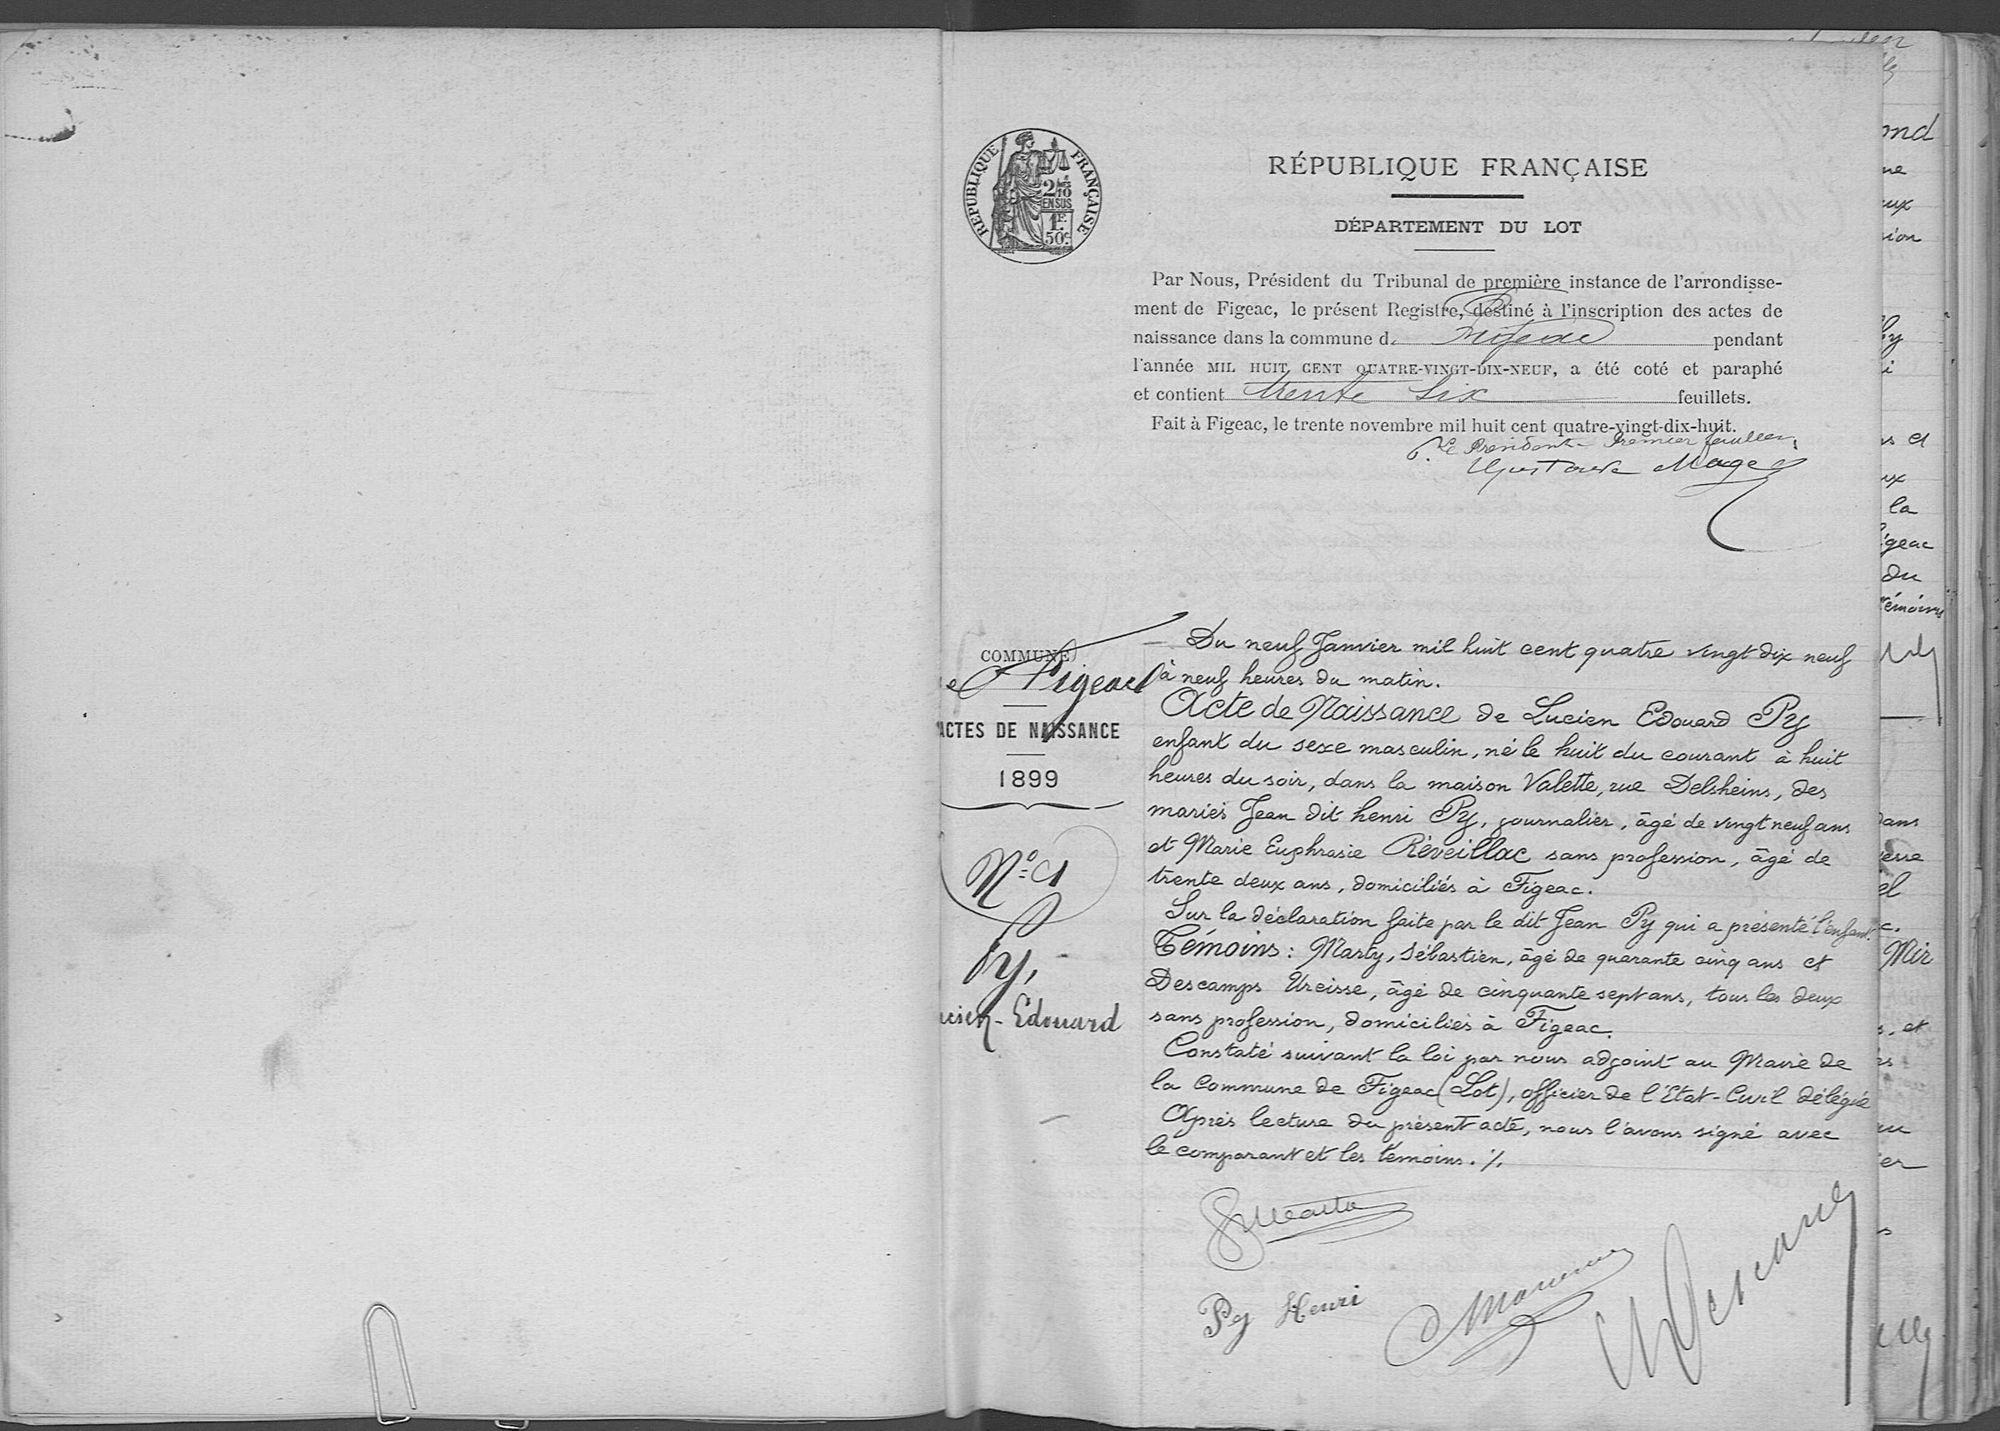 RÉPUBLIQUE FRANÇAISE
2 1/2 10
EN SUS
1F
50c
RÉPUBLIQUE FRANÇAISE
DÉPARTEMENT DU LOT
Par Nous, Président du Tribunal de première instance de l'arrondisse-
ment de Figeac, le présent Registre, destiné à l'inscription des actes de
naissance dans la commune d. Figeac pendant
l'année MIL HUIT CENT QUATRE-VINGT-DIX-NEUF, a été coté et paraphé
et contient trente six feuillets.
Fait à Figeac, le trente novembre mil huit cent quatre-vingt-dix-huit.
P. le Président Premier feuillet
Gustave Mage
COMMUNE
de Figeac
ACTES DE NAISSANCE
1899
No 1
Py,
Lucien-Edouard
Du neuf Janvier mil huit cent quatre vingt dix neuf
à neuf heures du matin.
Acte de Naissance de Lucien Edouard Py
enfant du sexe masculin, né le huit du courant à huit
heures du soir, dans la maison Valette, rue Delsheins, des
mariés Jean dit henri Py, journalier, âgé de vingt neuf ans
et Marie Euphrasie Réveillac sans profession, âgé de
trente deux ans, domiciliés à Figeac.
Sur la déclaration faite par le dit Jean Py qui a présenté l'enfant.
Témoins : Marty, Sébastien, âgé de quarante cinq ans et
Descamps Urcisse, âgé de cinquante sept ans, tous les deux
sans profession, domiciliés à Figeac.
Constaté suivant la loi par nous adjoint au Maire de
la Commune de Figeac (Lot), officier de l'Etat-Civil délégué
Après lecture du présent acte, nous l'avons signé avec
le comparant et les témoins. ./.
Py Henri